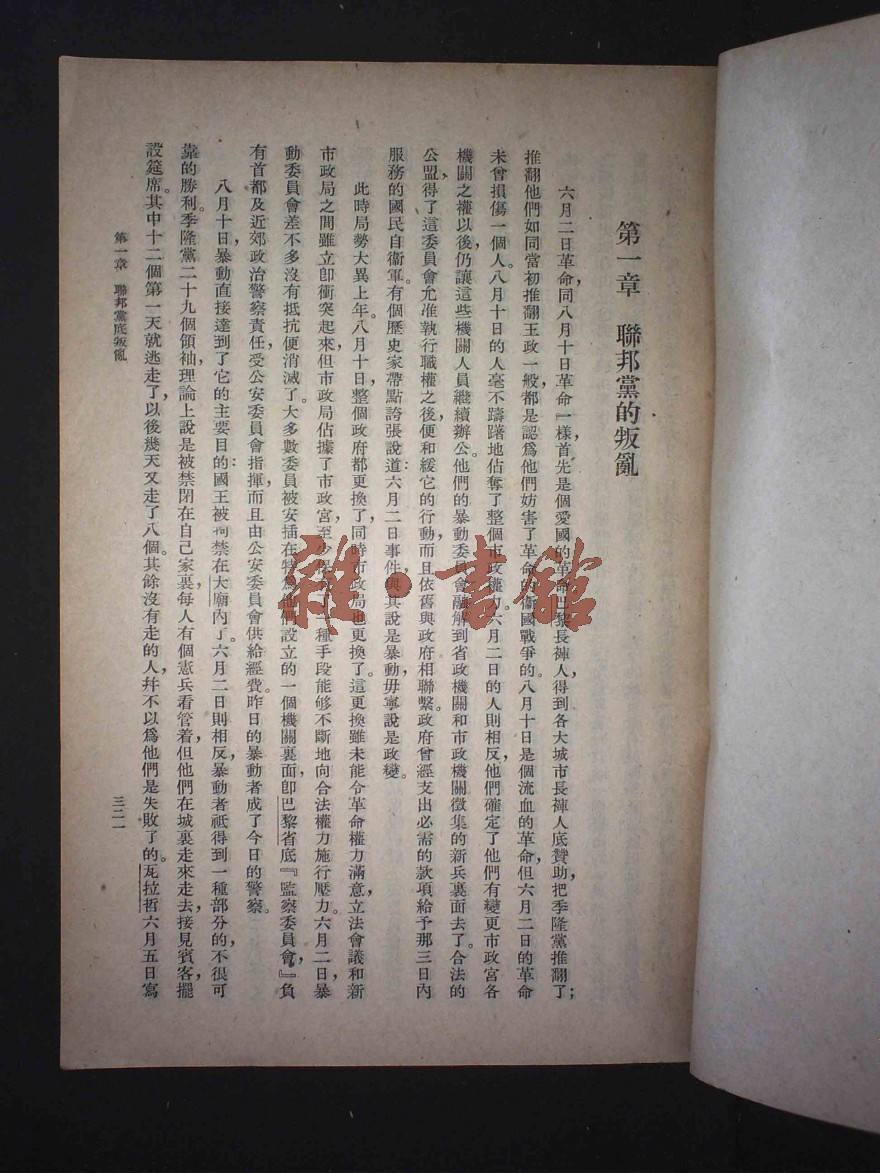 第一章　聯邦黨的叛亂
六月二日革命，同八月十日革命一樣，首先是個愛國的革命。巴黎長褲人，得到各大城市長褲人底贊助，把季隆黨推翻了；
推翻他們如同當初推翻王政一般，都是認爲他們妨害了革命的衞國戰爭的。八月十日是個流血的革命，但六月二日的革命
未曾損傷一個人。八月十日的人毫不躊躇地佔奪了整個市政權力。六月二日的人則相反，他們確定了他們有變更市政宮各
機關之權以後，仍讓這些機關人員繼續辦公。他們的暴動委員會融解到省政機關和市政機關徵集的新兵裏面去了。合法的
公盟，得了這委員會允准執行職權之後，便和緩它的行動，而且依舊與政府相聯繫。政府曾經支出必需的款項給予那三日內
服務的國民自衞軍。有個歷史家帶點誇張說道：六月二日事件，與其說是暴動，毋寧說是政變。
此時局勢大異上年。八月十日，整個政府都更換了，同時市政局也更換了。這更換雖未能令革命權力滿意，立法會議和新
市政局之間雖立卽衝突起來，但市政局佔據了市政宮，至少保有了一種手段能够不斷地向合法權力施行壓力。六月二日，暴
動委員會差不多沒有抵抗便消滅了。大多數委員被安插在特爲他們設立的一個機關裏面，卽巴黎省底『監察委員會，』負
有首都及近郊政治警察責任，受公安委員會指揮，而且由公安委員會供給經費。昨日的暴動者成了今日的警察。
八月十日，暴動直接達到了它的主要目的：國王被拘禁在大廟內了。六月二日則相反，暴動者祗得到一種部分的，不很可
靠的勝利。季隆黨二十九個領袖，理論上說是被禁閉在自己家裏，每人有個憲兵看管着，但他們在城裏走來走去，接見賓客，擺
設筵席。其中十二個第一天就逃走了，以後幾天又走了八個。其餘沒有走的人，幷不以爲他們是失敗了的。瓦拉哲六月五日寫
第一章　聯邦黨底叛亂
三二一
雜·書館